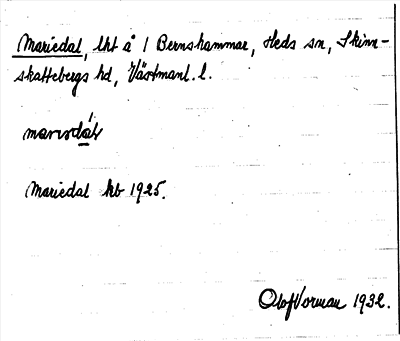 Mariedal, lht å 1 Bernshammar, Heds sn, Skinn-
skattebergs hd, Västmanl. l.
Mariedal kb 1925.
Olof Vorman 1932.